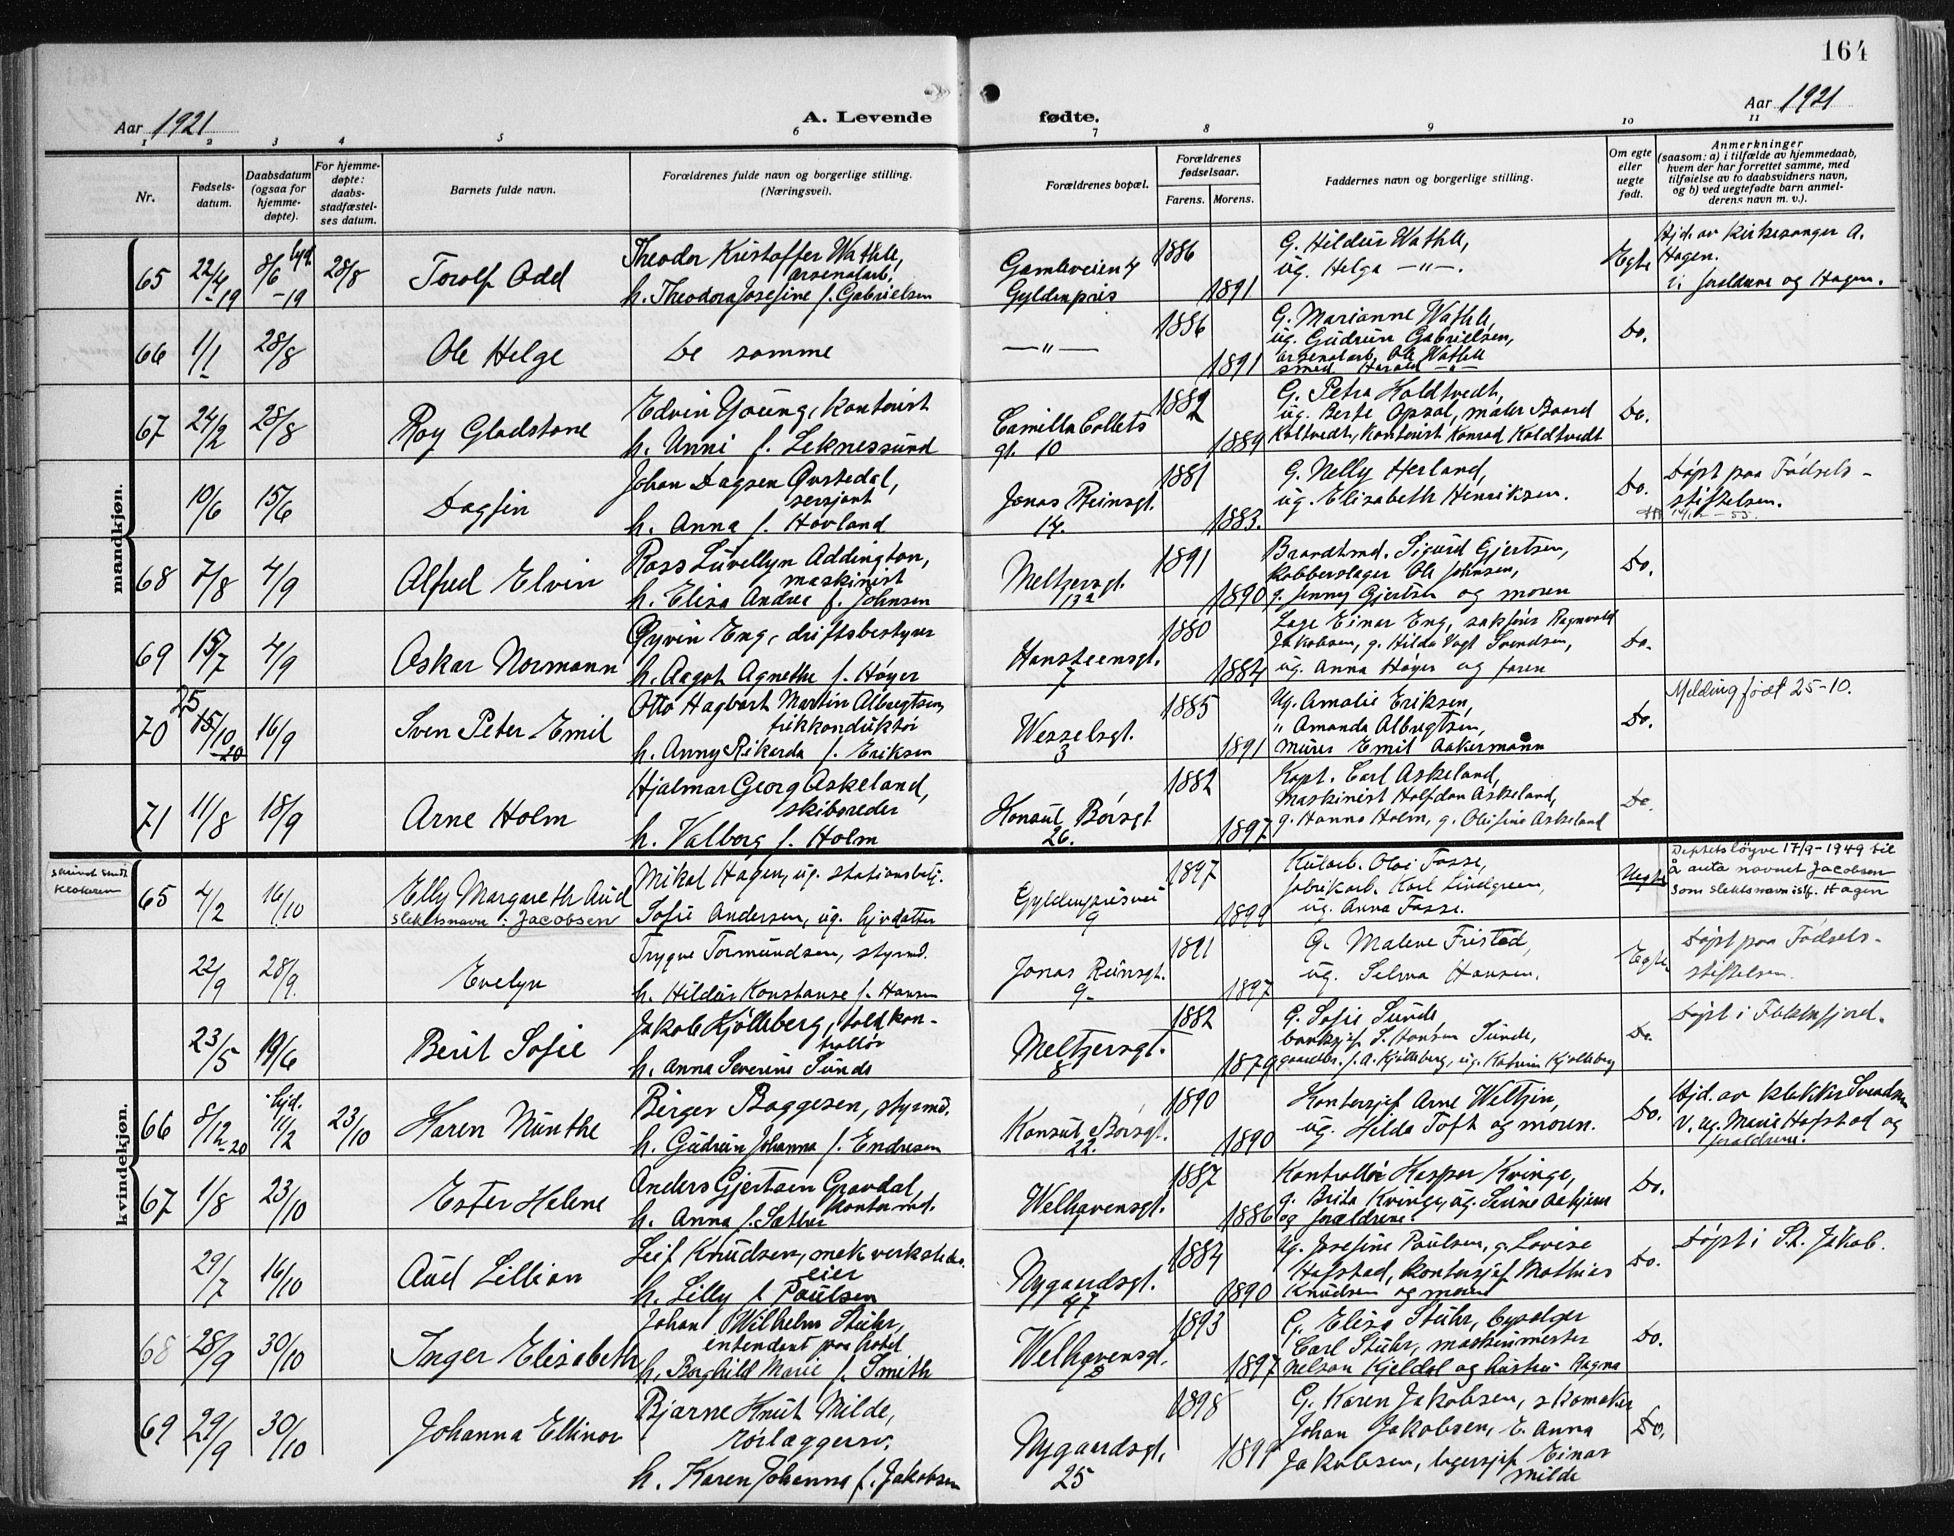 164
Aar 1921
A. Levende fødte.
Aar 1921
1 2 3 4 5 6 7 8 9 10 11
Nr.
Fødsels-
datum.
Daabsdatum
(ogsaa for
hjemme-
døpte).
For hjemme-
døpte:
daabs-
stadfæstel-
ses datum.
Barnets fulde navn.
Forældrenes fulde navn og borgerlige stilling.
(Næringsvei).
Forældrenes bopæl.
Forældrenes
fødselsaar.
Farens. Morens.
Faddernes navn og borgerlige stilling.
Om egte
eller
uegte
født.
Anmerkninger
(saasom: a) i tilfælde av hjemmedaab,
hvem der har forrettet samme, med
tilføielse av to daabsvidners navn,
og b) ved uegtefødte barn anmel-
derens navn m. v.).
mandkjøn.
65 22/4-19 hjd. 8/6-19 28/8 Torolf Odd
Theodor Kristoffer Wathle,
arsenalarb.
h. Theodora Josefine f. Gabrielsen
Gamleveien 4
Gyldenpris
1886 1891
G. Hildur Wathle,
ug. Helga —"—.
Egte
Hjd. av kirkesanger A.
Hagen.
foraldrene og Hagen.
66 1/1 28/8 Ole Helge
De samme
—"—
1886 1891
G. Marianne Wathle,
ug. Gudrun Gabrielsen,
arsenalarb. Ole Wathle
smed Harald —"—
Do.
67 24/2 28/8 Roy Gladstone
Edvin Young, kontorist
h. Unni f. Leknessund
Camilla Collets
gt. 10
1882 1889
G. Petra Koldtvedt,
ug. Berte Opsal, maler Baard
Koltvedt, kontorist Konrad Koldtvedt
Do.
10/6 15/6 Dagfin
Johan Dagsen Øvstedal,
sersjant
h. Anna f. Hovland
Jonas Reinsgt.
14.
1881 1883.
G. Nelly Herland,
ug. Elisabeth Henriksen.
Do.
Døpt paa Fødsels-
stiftelsen.
68 7/8 4/9 Alfred Elvin
Ross Luvellyn Addington,
maskinist
h. Elisa Andrea f. Johnsen
Meltzersgt.
13a
1891 1890
Brandtmd. Sigurd Gjertsen,
kobberslager Ole Johnsen,
g. Jenny Gjertsen og moren
Do.
69 15/7 4/9 Oskar Normann
Øyvin Eng, driftsbestyrer
h. Aagot Agnethe f. Høyer
Hansteensgt.
7
1880 1884
Lage Einar Eng, sakfører Ragnvald
Jakobsen, g. Hilda Vogt Svendsen,
ug. Anna Høyer og faren
Do.
70 25 15/10-20 16/9 Sven Peter Emil
Otto Hagbart Martin Albregtsen,
trikkonduktør
h. Anny Rikarda f. Eriksen
Wesselsgt.
3
1885 1891
Ug. Amalie Eriksen,
" Amanda Albregtsen,
murer Emil Aakermann
Do.
Melding født 25-10.
71 11/8 18/9 Arne Holm
Hjalmar Georg Askeland,
skibsreder
h. Valborg f. Holm
Konsul Børsgt
26.
1882 1897
Kapt. Carl Askeland,
maskinist Halfdan Askeland,
g. Hanna Holm, g. Olufine Askeland
Do.
kvindekjøn.
klokeren
65 4/2 16/10 Elly Margareth Aud
slektsnavn: Jacobsen
Mikal Hagen, ug. stationsbetj.
Sofie Andersen, ug.
Gyldenprisvei
9
1897 1899
Olai Fosse,
fabrikarb. Karl Lindgreen,
ug. Anna Fosse.
Uegte
17/9-1949 til
å anta navnet Jacobsen
som slektsnavn istf. Hagen
22/9 28/9. Evelyn
Trygve Tormundsen, styrmd.
h. Hildur Konstanse f. Hansen
Jonas Reinsgt.
9
1891 1897
G. Malene Fristad,
ug. Selma Hansen.
Egte.
Døpt paa Fødsels-
stiftelsen.
23/5 19/6 Berit Sofie
Jakob Kjølleberg, toldkon-
trollør
h. Anna Severine Sunde
Meltzersgt.
8
1882 1879
G. Sofie Sunde
banksjef S. Hansen Sunde,
gaardbr. J. A. Kjølleberg, ug. Katrine Kjølleberg
Do.
Døpt i
66 8/12-20 hjd. 11/2 23/10 Karen Munthe
Birger Baggesen, styrmd.
h. Gudrun Johanna f. Endresen
Konsul Børsgt.
22.
1890 1890
Kontorsjef Arne Weltzin,
ug. Hilda Toft og moren.
Do.
Hjd. av klokker Svendsen
v. ug. Marie Hofstad og
foraldrene.
67 1/8 23/10 Ester Helene
Anders Gjertsen Gravdal,
kontormd.
h. Anna f. Sæther
Welhavensgt.
1887 1886
Kontrollør Kasper Kvinge,
g. Brita Kvinge, ug.
og forældrene.
Do.
29/7 16/10 Aud Lillian
Leif Knudsen, mek verksteds.
eier
h. Lilly f. Paulsen
Nygaardsgt.
47
1884 1890
Ug. Josefine Paulsen, g. Lovise
Hofstad, kontorsjef Mathias
Knudsen og moren
Do.
Døpt i St. Jakob.
68 28/9 30/10 Inger Elisabeth
Johan Wilhelm Stuhr,
intendant paa hotel
h. Borghild Marie f. Smith
Welhavensgt.
1893 1897
G. Elisa Stuhr, byselger
Carl Stuhr, maskinmester
Nelson Kjeldal og hustru Ragna
Do.
69 29/9 30/10 Johanna Ellinor
Bjarne Knut Milde,
rørlæggersv.
h. Karen Johanna f. Jakobsen
Nygaardsgt.
25
1898 1899
G. Karen Jakobsen, skomaker
Johan Jakobsen, E. Anna
Jakobsen, lagersjef Einar
Milde
Do.